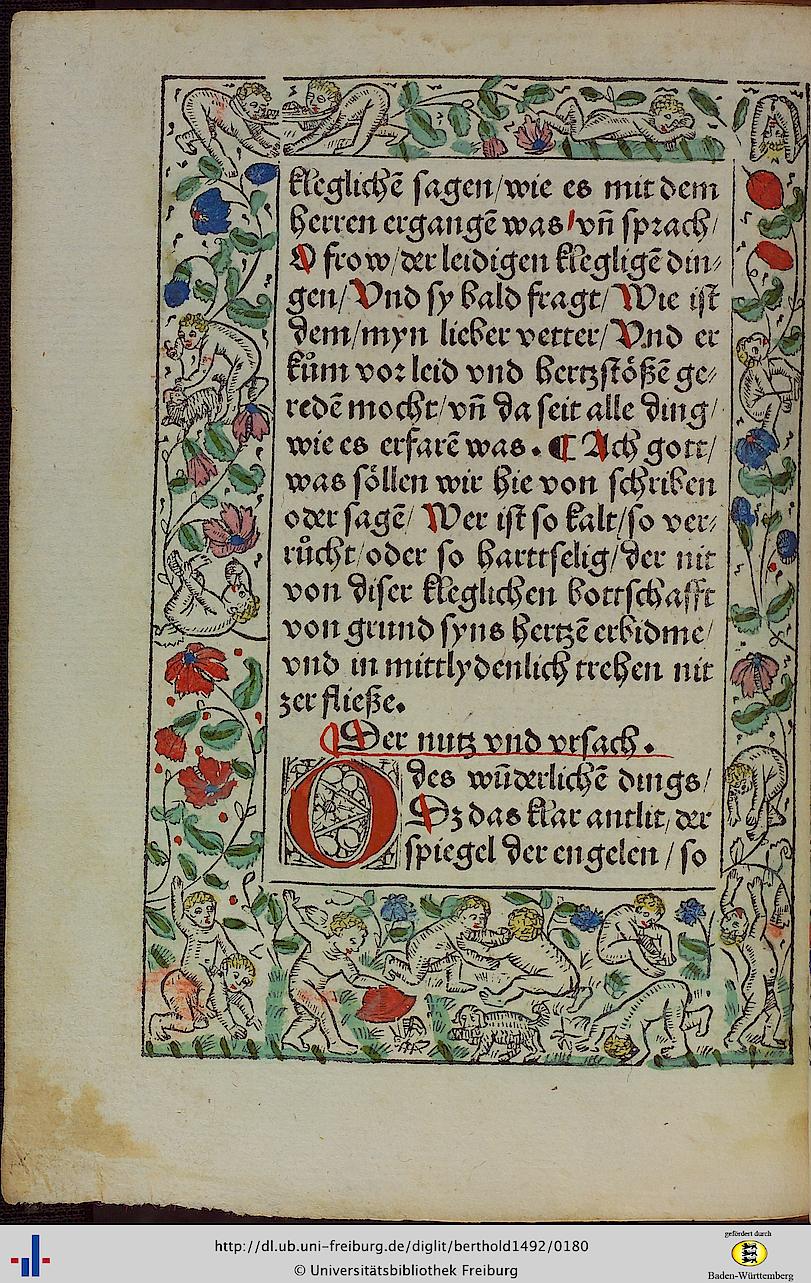 kleglichē sagen/wie es mit dem
herren ergangē was/vn̄ sprach/
O frow/der leidigen klegligē din⸗
gen/Vnd sy bald fragt/Wie ist
dem/myn lieber vetter/Vnd er
kům vor leid vnd hertzstößē ge⸗
redē mocht/vn̄ da seit alle ding/
wie es erfarē was. ¶ Ach gott/
was söllen wir hie von schriben
oder sagē/ Wer ist so kalt/so ver⸗
růcht/oder so harttselig/der nit
von diser kleglichen bottschafft
von grund syns hertzē erbidme/
vnd in mittlydenlich trehen nit
zer fließe.
¶ Der nutz vnd vrsach.
O des wūderlichē dings/
Dz das klar antlit, der
spiegel der engelen/so
http://dl.ub.uni-freiburg.de/diglit/berthold1492/0180
© Universitätsbibliothek Freiburg
gefördert durch
Baden-Württemberg